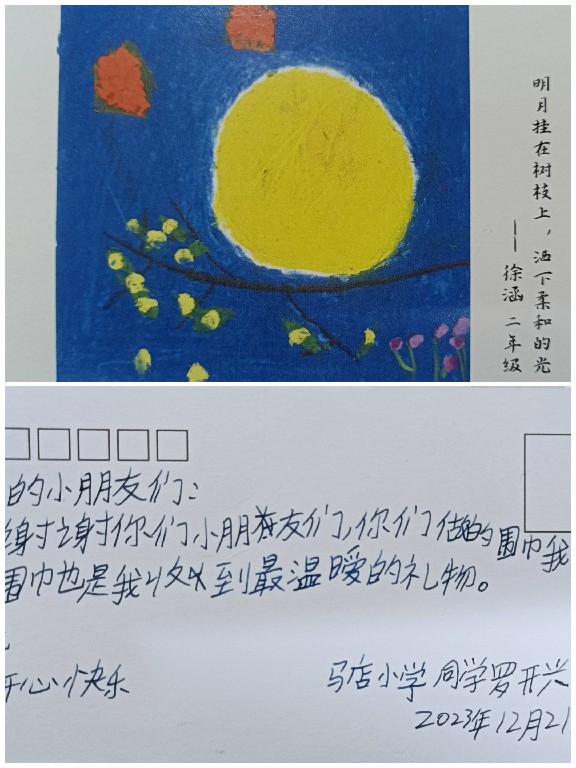 明月挂在树枝上，洒下柔和的光
——徐涵 二年级
的小朋友们：
谢谢你们小朋友们，你们做的围巾我
围巾也是我收到最温暖的礼物。
开心快乐
马店小学 同学罗开兴
2023年12月21